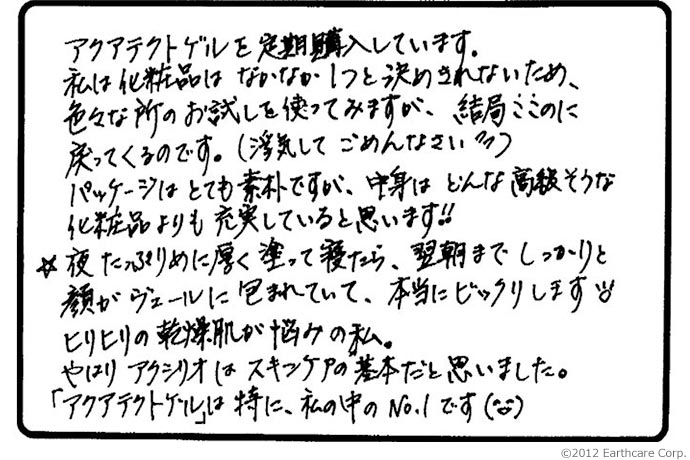 アクアテクトゲルを定期購入しています。
私は化粧品はなかなか1つと決めきれないため、
色々な所のお試しを使ってみますが、結局ここのに
戻ってくるのです。(浮気してごめんなさい)
パッケージはとても素朴ですが、中身はどんな高級そうな
化粧品よりも充実していると思います!!
☆夜たっぷりめに厚く塗って寝たら、翌朝までしっかりと
顔がヴェールに包まれていて、本当にビックリします
ヒリヒリの乾燥肌が悩みの私。
やはりアクシリオはスキンケアの基本だと思いました。
「アクアテクトゲル」は特に、私の中のNo.1です(^^)
©2012 Earthcare Corp.